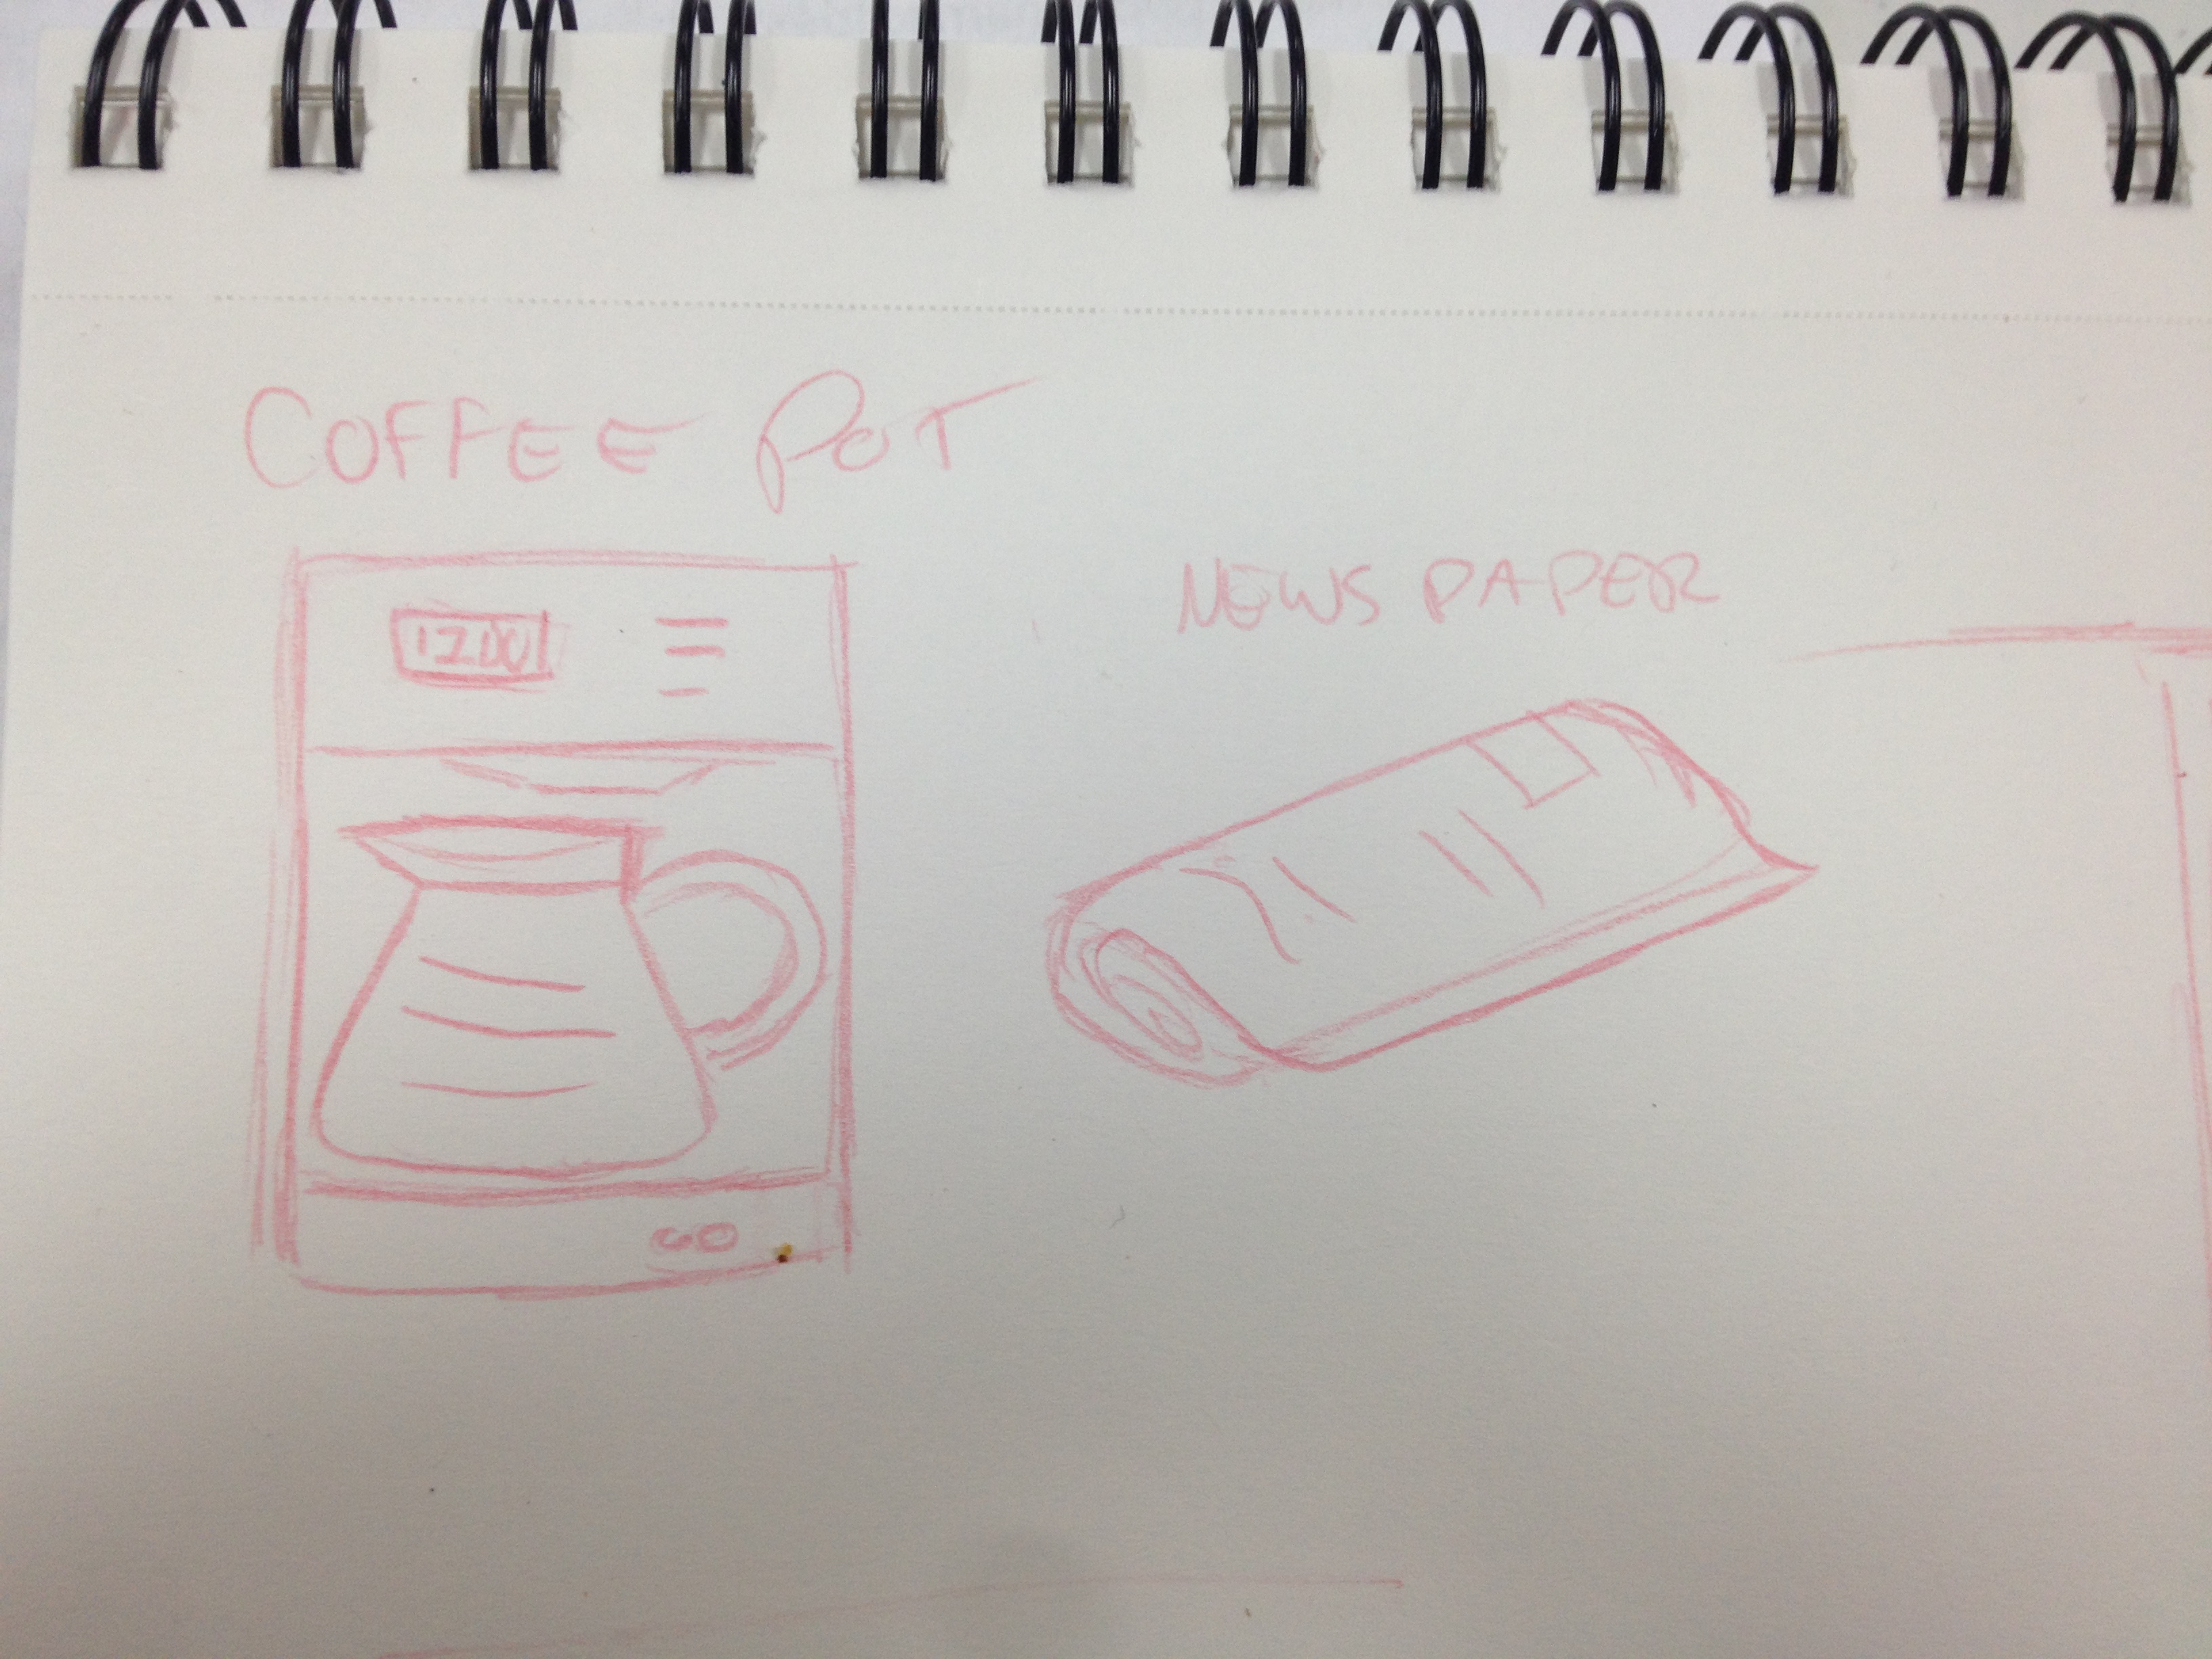 COFFEE POT
12:00
NEWS PAPER